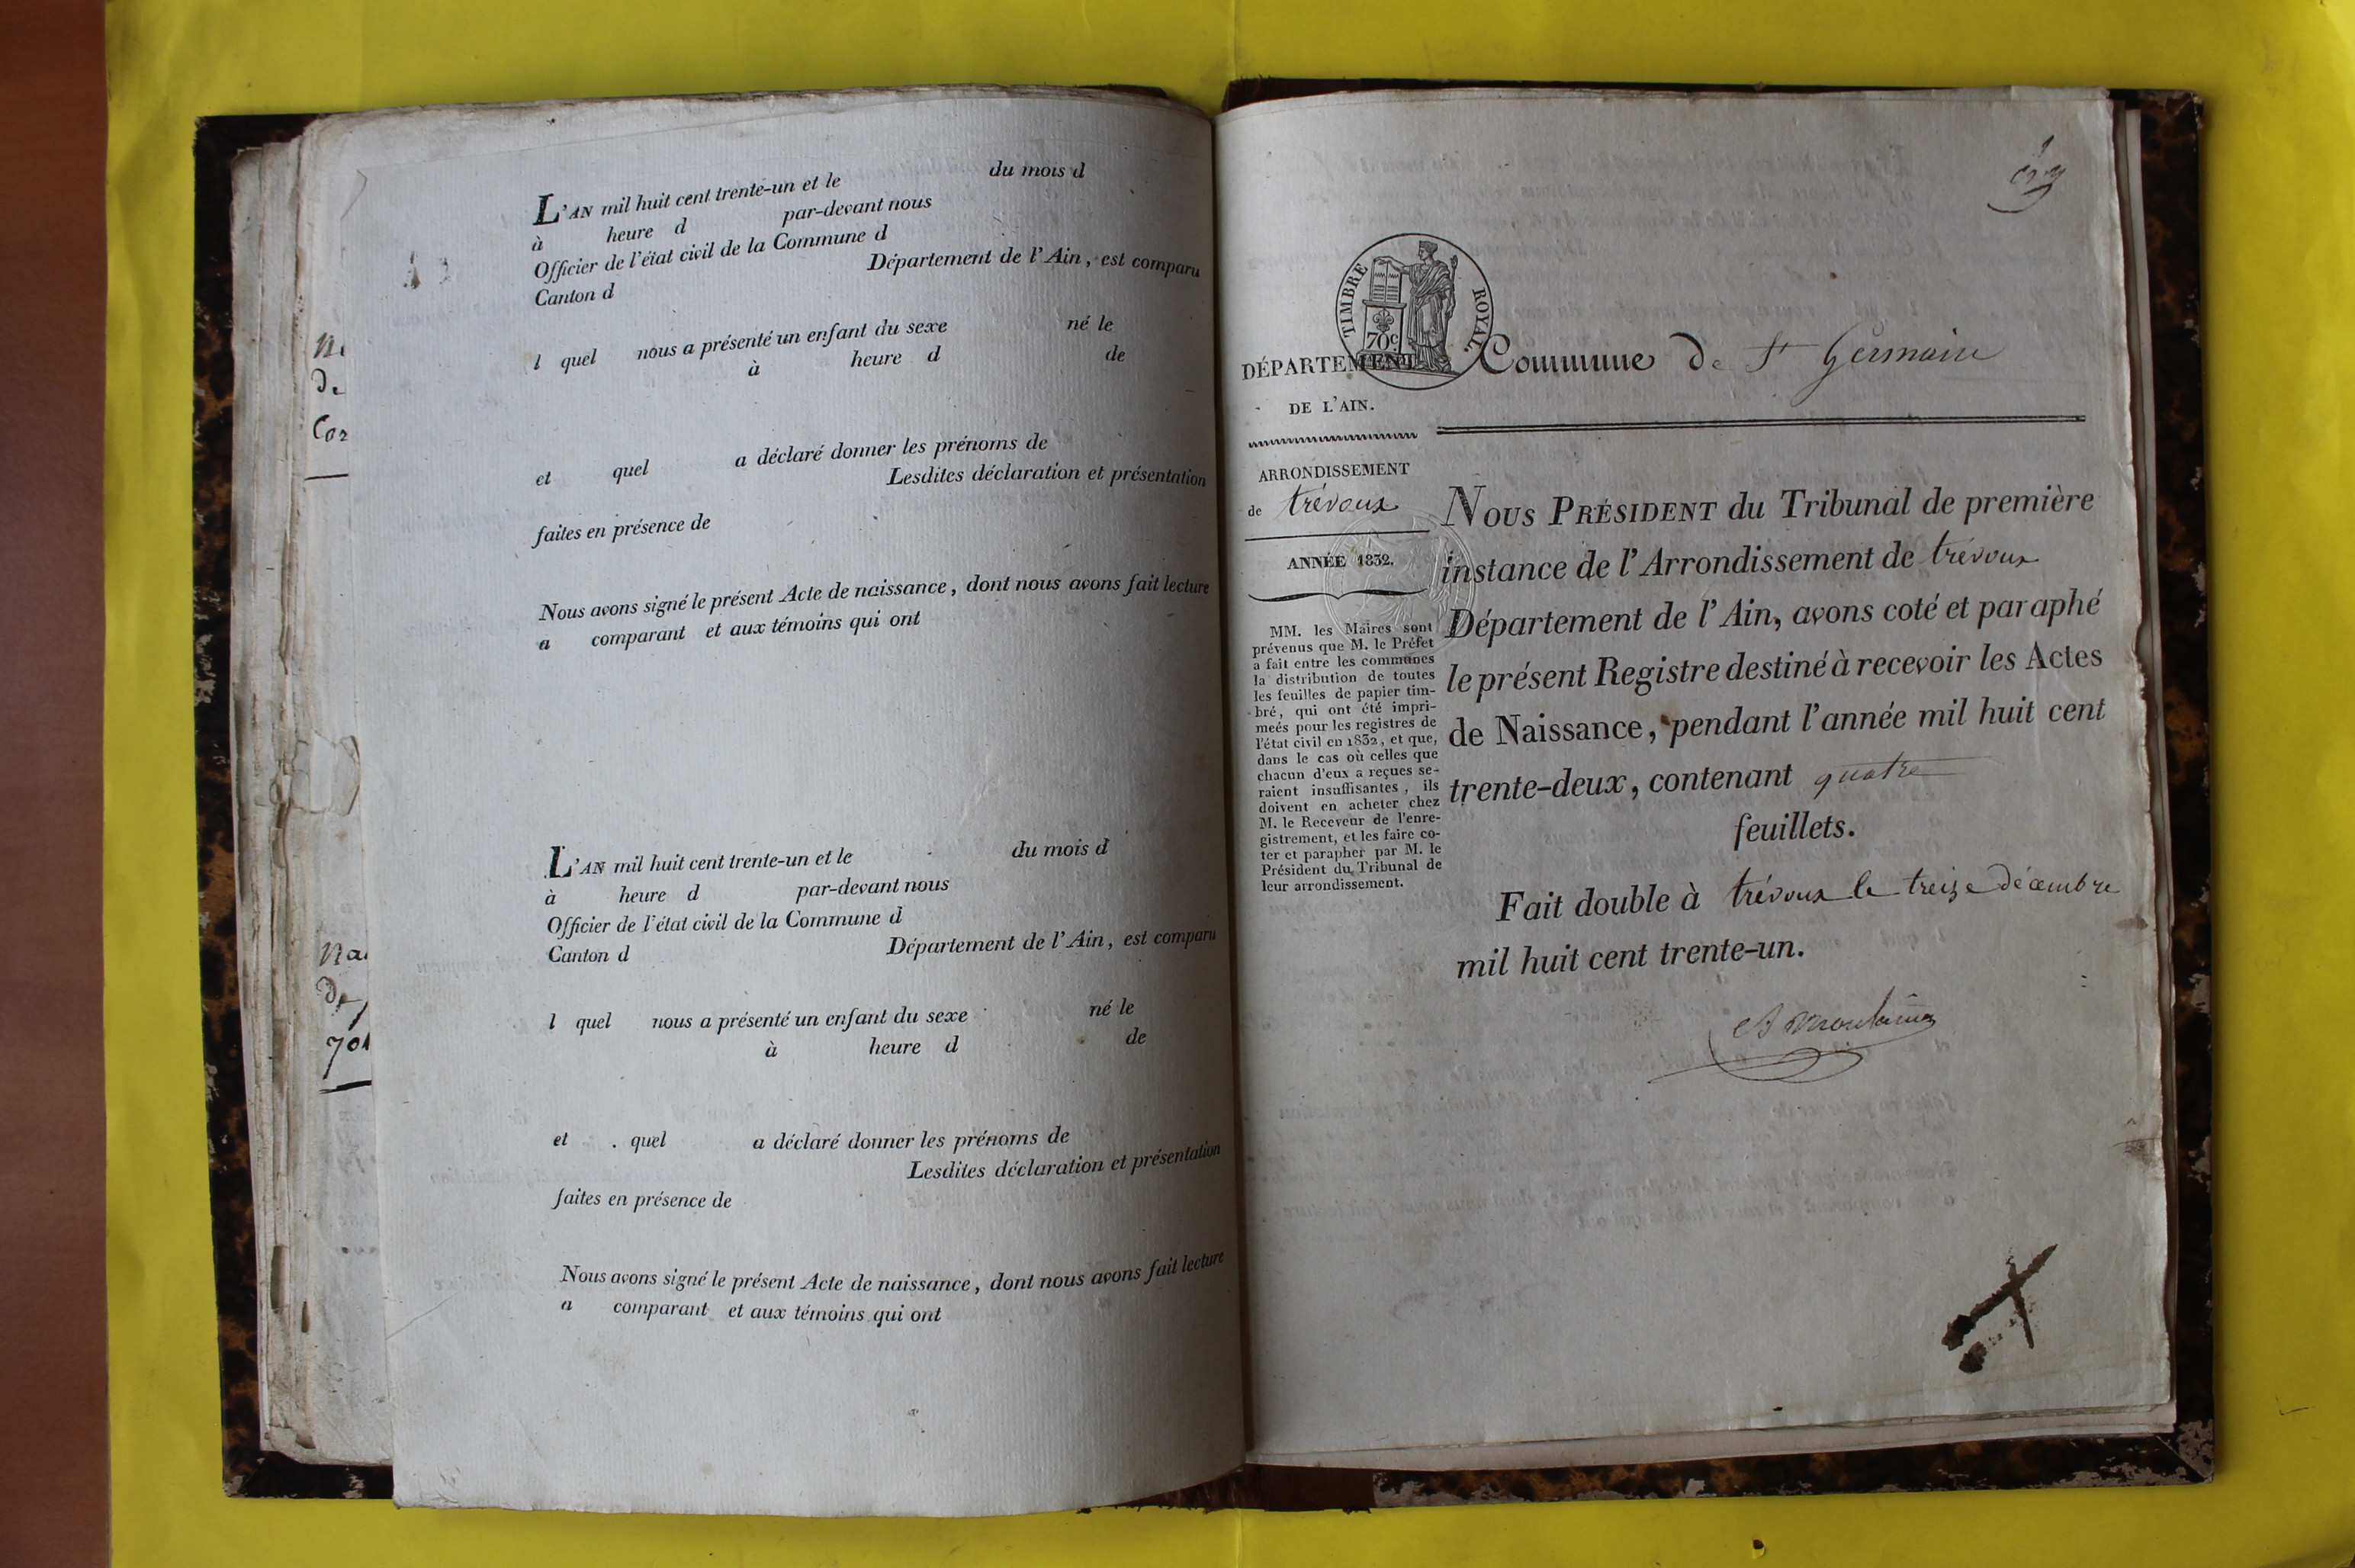 L'AN mil huit cent trente-un et le du mois d
à heure d par-devant nous
Officier de l'état civil de la Commune d
Canton d Département de l'Ain, est comparu
l quel nous a présenté un enfant du sexe né le
à heure d de
et quel a déclaré donner les prénoms de
Lesdites déclaration et présentation
faites en présence de
Nous avons signé le présent Acte de naissance, dont nous avons fait lecture
a comparant et aux témoins qui ont
L'AN mil huit cent trente-un et le du mois d
à heure d par-devant nous
Officier de l'état civil de la Commune d
Canton d Département de l'Ain, est comparu
l quel nous a présenté un enfant du sexe né le
à heure d de
et quel a déclaré donner les prénoms de
Lesdites déclaration et présentation
faites en présence de
Nous avons signé le présent Acte de naissance, dont nous avons fait lecture
a comparant et aux témoins qui ont
TIMBRE ROYAL.
70c
DÉPARTEMENT
DE L'AIN.
ARRONDISSEMENT
de trévoux
ANNÉE 1832.
MM. les Maires sont
prévenus que M. le Préfet
a fait entre les communes
la distribution de toutes
les feuilles de papier tim-
bré, qui ont été impri-
meés pour les registres de
l'état civil en 1832, et que,
dans le cas où celles que
chacun d'eux a reçues se-
raient insuffisantes, ils
doivent en acheter chez
M. le Receveur de l'enre-
gistrement, et les faire co-
ter et parapher par M. le
Président du Tribunal de
leur arrondissement.
Commune de St Germain
NOUS PRÉSIDENT du Tribunal de première
instance de l'Arrondissement de trévoux
Département de l'Ain, avons coté et paraphé
le présent Registre destiné à recevoir les Actes
de Naissance, pendant l'année mil huit cent
trente-deux, contenant quatre
feuillets.
Fait double à trévoux le treize décembre
mil huit cent trente-un.